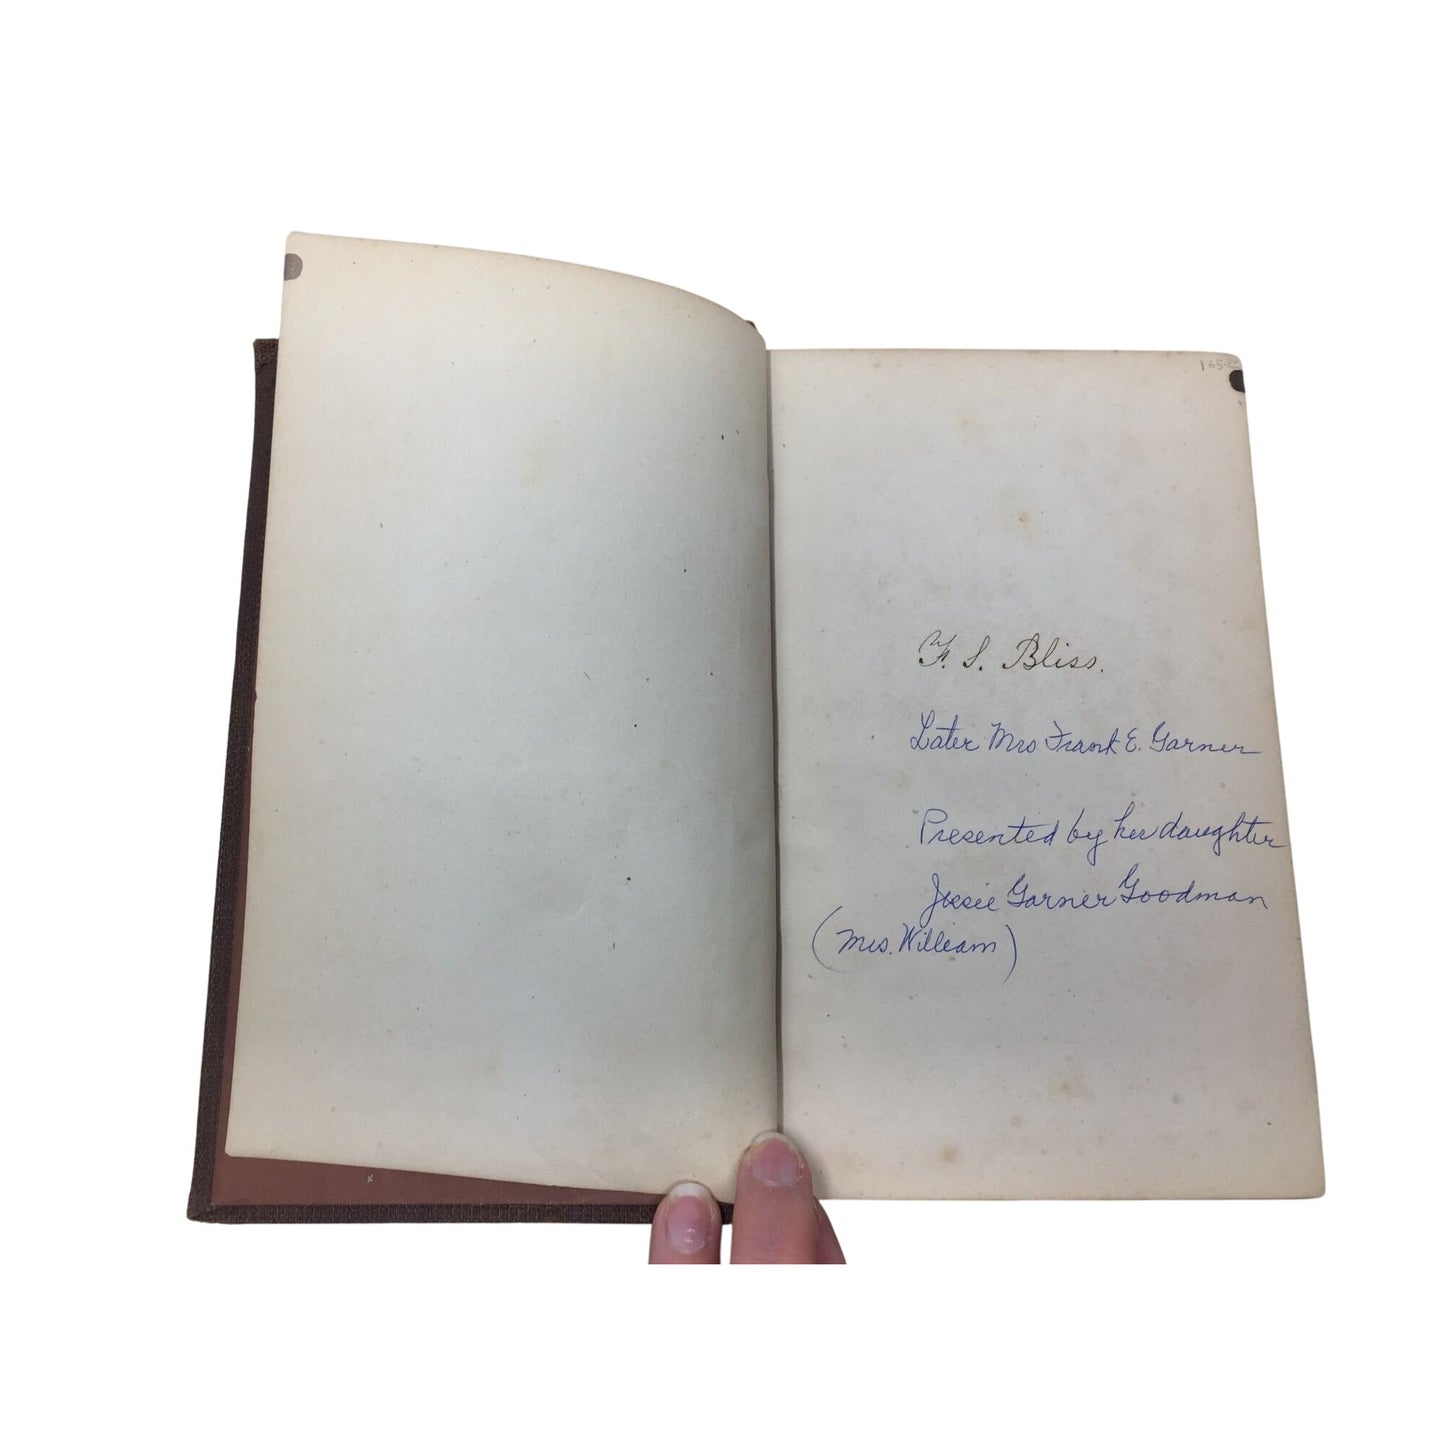 F. S. Bliss.
Later Mrs Frank E. Garner
Presented by her daughter
Jessie Garner Goodman
(Mrs. William)